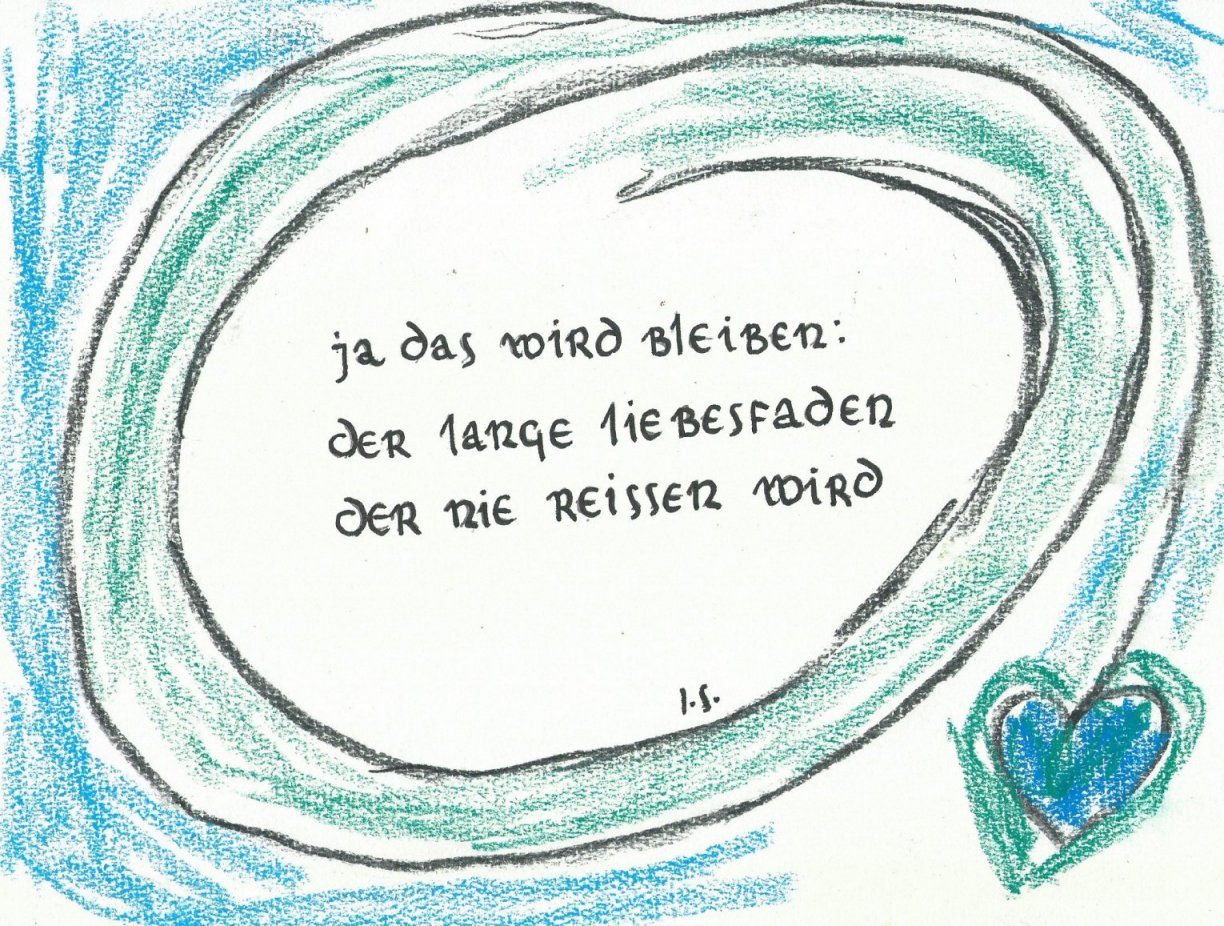 ja das wird bleiben:
der lange liebesfaden
der nie reissen wird
J.S.